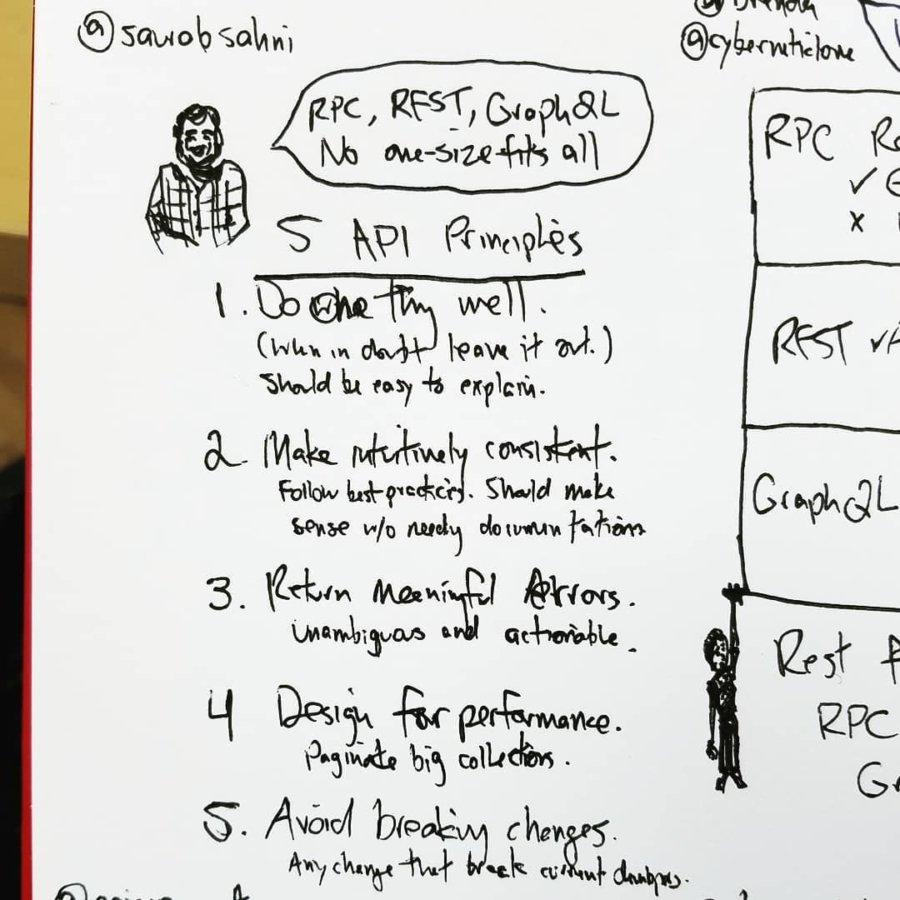 @saurabsahni
RPC, REST, GraphQL
No one-size-fits all
5 API Principles
1. Do one thing well.
(When in doubt leave it out.)
Should be easy to explain.
2. Make intuitively consistent.
Follow best practices. Should make
sense w/o needy documentations
3. Return Meaningful Errors.
Unambiguous and actionable.
4 Design for performance.
Paginate big collections.
5. Avoid breaking changes.
Any change that break current
@cyberneticlove
RPC
✓
x
REST ✓
GraphQL
Rest
RPC